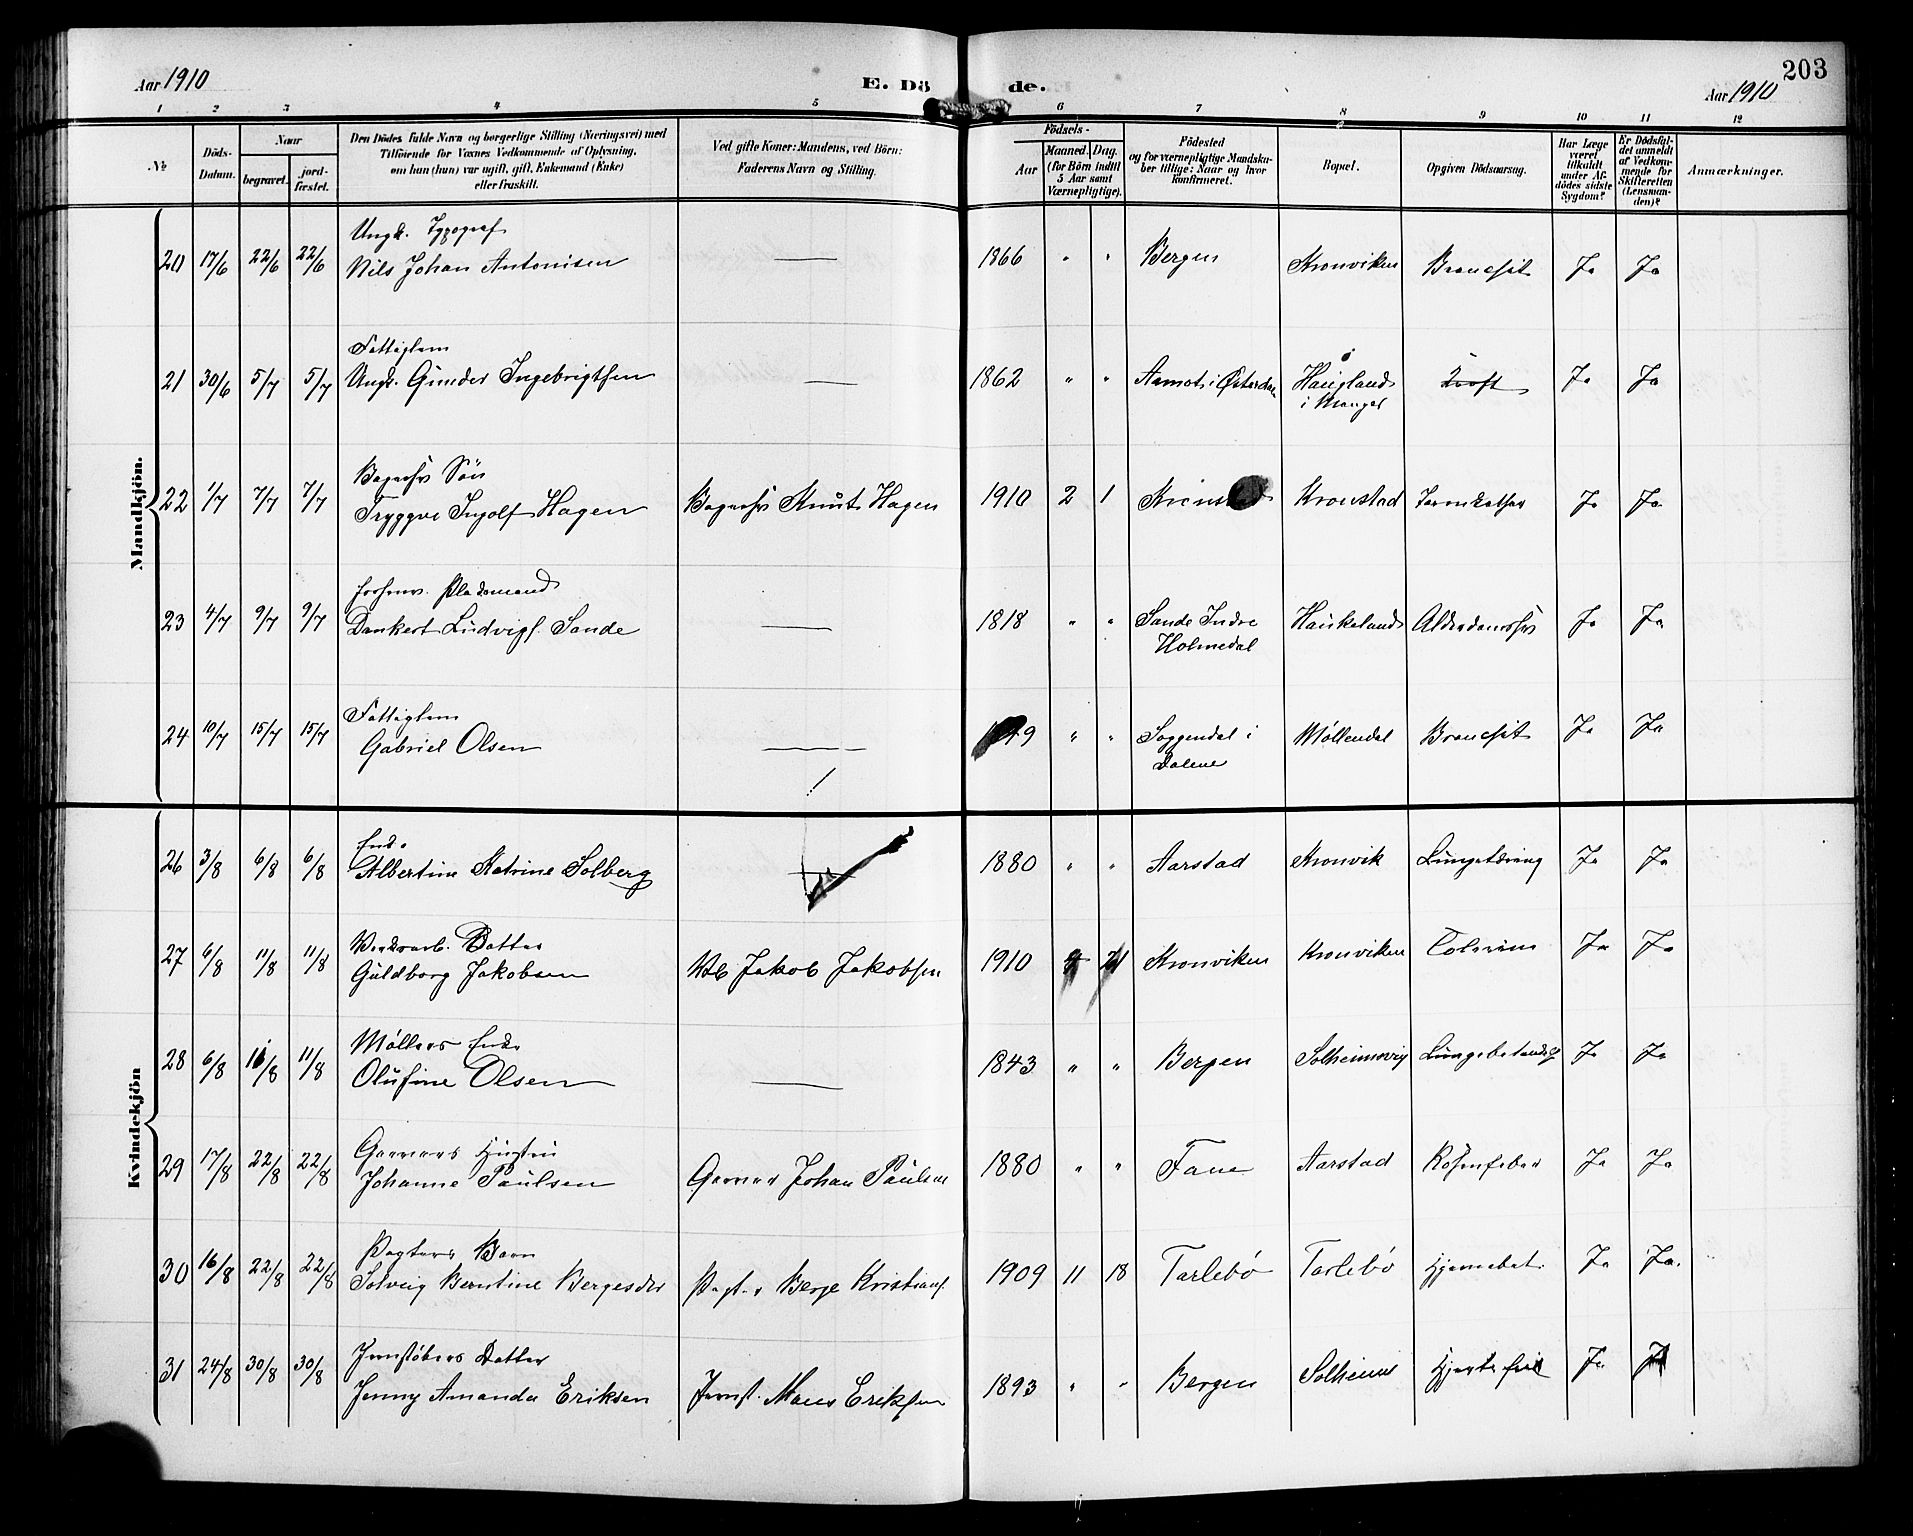 Aar 1910
E. Dö
de.
203
Aar 1910
1 2 3 4 5 6 7 8 9 10 11 12
No
Döds-Datum.
Naar
begravet.
jord-fæstet.
Den Dödes fulde Navn og borgerlige Stilling (Næringsvei) med
Tilföiende for Voxnes Vedkommende af Oplysning,
om han (hun) var ugift, gift, Enkemand (Enke)
eller fraskilt.
Ved gifte Koner: Mandens, ved Börn:
Faderens Navn og Stilling.
Födsels-
Aar
Maaned.
Dag.
(for Börn indtil
5 Aar samt
Værnepligtige).
Födested
og for værnepligtige Mandska-
ber tillige: Naar og hvor
konfirmeret.
Bopæl.
Opgiven Dödsaarsag.
Har Læge
været
tilkaldt
under Af-
dödes sidste
Sygdom?
Er Dödsfal-
det anmeldt
af Vedkom-
mende for
Skifteretten
(Lensman-
den)?
Anmærkninger.
Mandkjön.
Ungk. Typograf
20 17/6 22/6 22/6 Nils Johan Antonisen — 1866 " " Bergen Kronviken Brancsit Ja Ja
Fattiglem
21 30/6 5/7 5/7 Ungk. Gunder Ingebrigtsen — 1862 " " Aamot i Østerdalen Haugland Ja Ja
i Manger
Søn
22 1/7 7/7 7/7 Tryggve Ingolf Hagen Knut Hagen 1910 2 1 Kronstad Kronstad Ja Ja
Pladsmand
23 4/7 9/7 9/7 Dankert Ludvigs. Sande — 1818 " " Sande Indre Haukeland Ja Ja
Holmedal
Fattiglem
24 10/7 15/7 15/7 Gabriel Olsen — 9 " " Soggendal i Møllendal Brancsit Ja Ja
Dalene
Kvindekjön
Enke
26 3/8 6/8 6/8 Albertine Katrine Solberg 1880 " " Aarstad Kronvik Lungetæring Ja Ja
Datter
27 6/8 11/8 11/8 Guldborg Jakobsen Jakob Jakobsen 1910 Kronviken Kronviken Colerine Ja Ja
Møllers Enke
28 6/8 11/8 11/8 Olufine Olsen — 1843 " " Bergen Solheimsvig Lungebetændelse Ja Ja
Garvers Hustru
29 17/8 22/8 22/8 Johanne Paulsen Garver Johan Paulsen 1880 " " Fane Aarstad Rosenfeber Ja Ja
Pagters Barn
30 16/8 22/8 22/8 Solveig Berntine Bergesdtr Pagter Berge Kristians. 1909 11 18 Tarlebø Tarlebø Hjernebet. Ja Ja.
Jernstøbers Datter
31 24/8 30/8 30/8 Jenny Amanda Eriksen Jernst. Mons Eriksen 1893 " " Bergen Solheim Hjertefeil Ja Ja